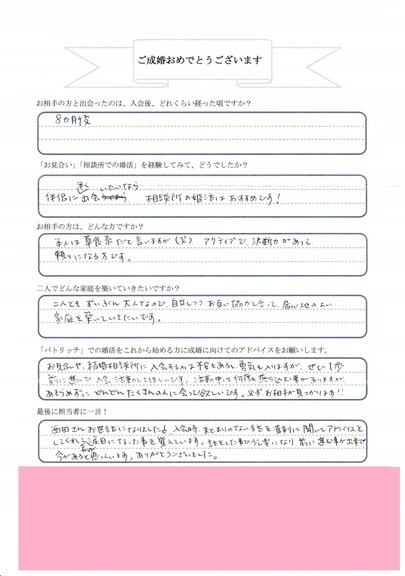 ご成婚おめでとうございます
お相手の方と出会ったのは、入会後、どれくらい経った頃ですか?
8カ月後
「お見合い」「相談所での婚活」を経験してみて、どうでしたか?
いたいなら
伴侶に出会 相談所の婚活はおすすめです!
お相手の方は、どんな方ですか?
本人は草食系だと言いますが(笑) アクティブで、決断力があって
頼りになる方です。
二人でどんな家庭を築いていきたいですか?
二人とも ずいぶん大人なので、自立しつつお互い協力し合って、居心地のよい
家庭を築いていきたいです。
「パトリッチ」での婚活をこれから始める方に成婚に向けてのアドバイスをお願いします。
お見合いや、結婚相談所に入会するのは不安もあるし勇気も入りますが、ぜひ1歩
前に進んで入会、活動してほしいです。活動中は何度も落ち込む事がありますが
あきらめずに、どんどんたくさんの人に会って欲しいです。必ずお相手が見つかります!!
最後に担当者に一言!
西田さんお世話になりました。入会時、まとまりのない話を真剣に聞いてアドバイスと
してくれ 涙目になった事を覚えています。話をした事で 楽になり 前に進む事が出来て
今があると思っています。ありがとうございました。